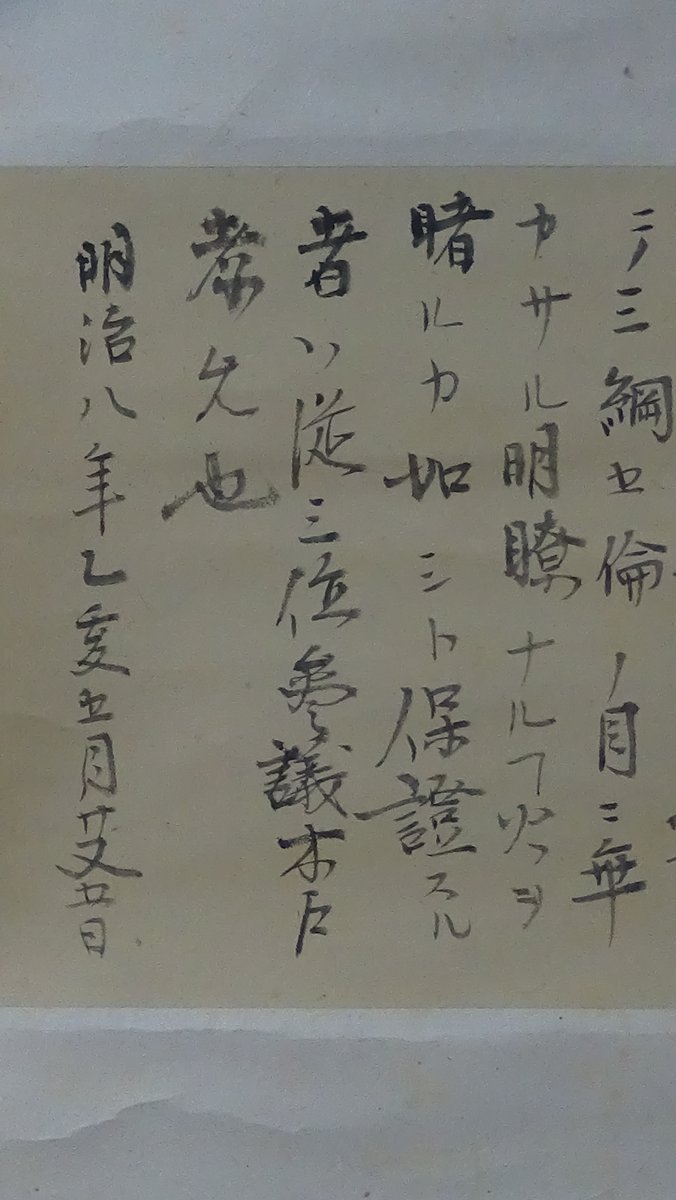 ニノ三綱五倫ノ目ニ無
カサル明瞭ナルヿ火ヲ
睹ルカ如シト保證スル
者ハ従三位參議木戸
孝允也
明治八年乙亥五月廿又廿日